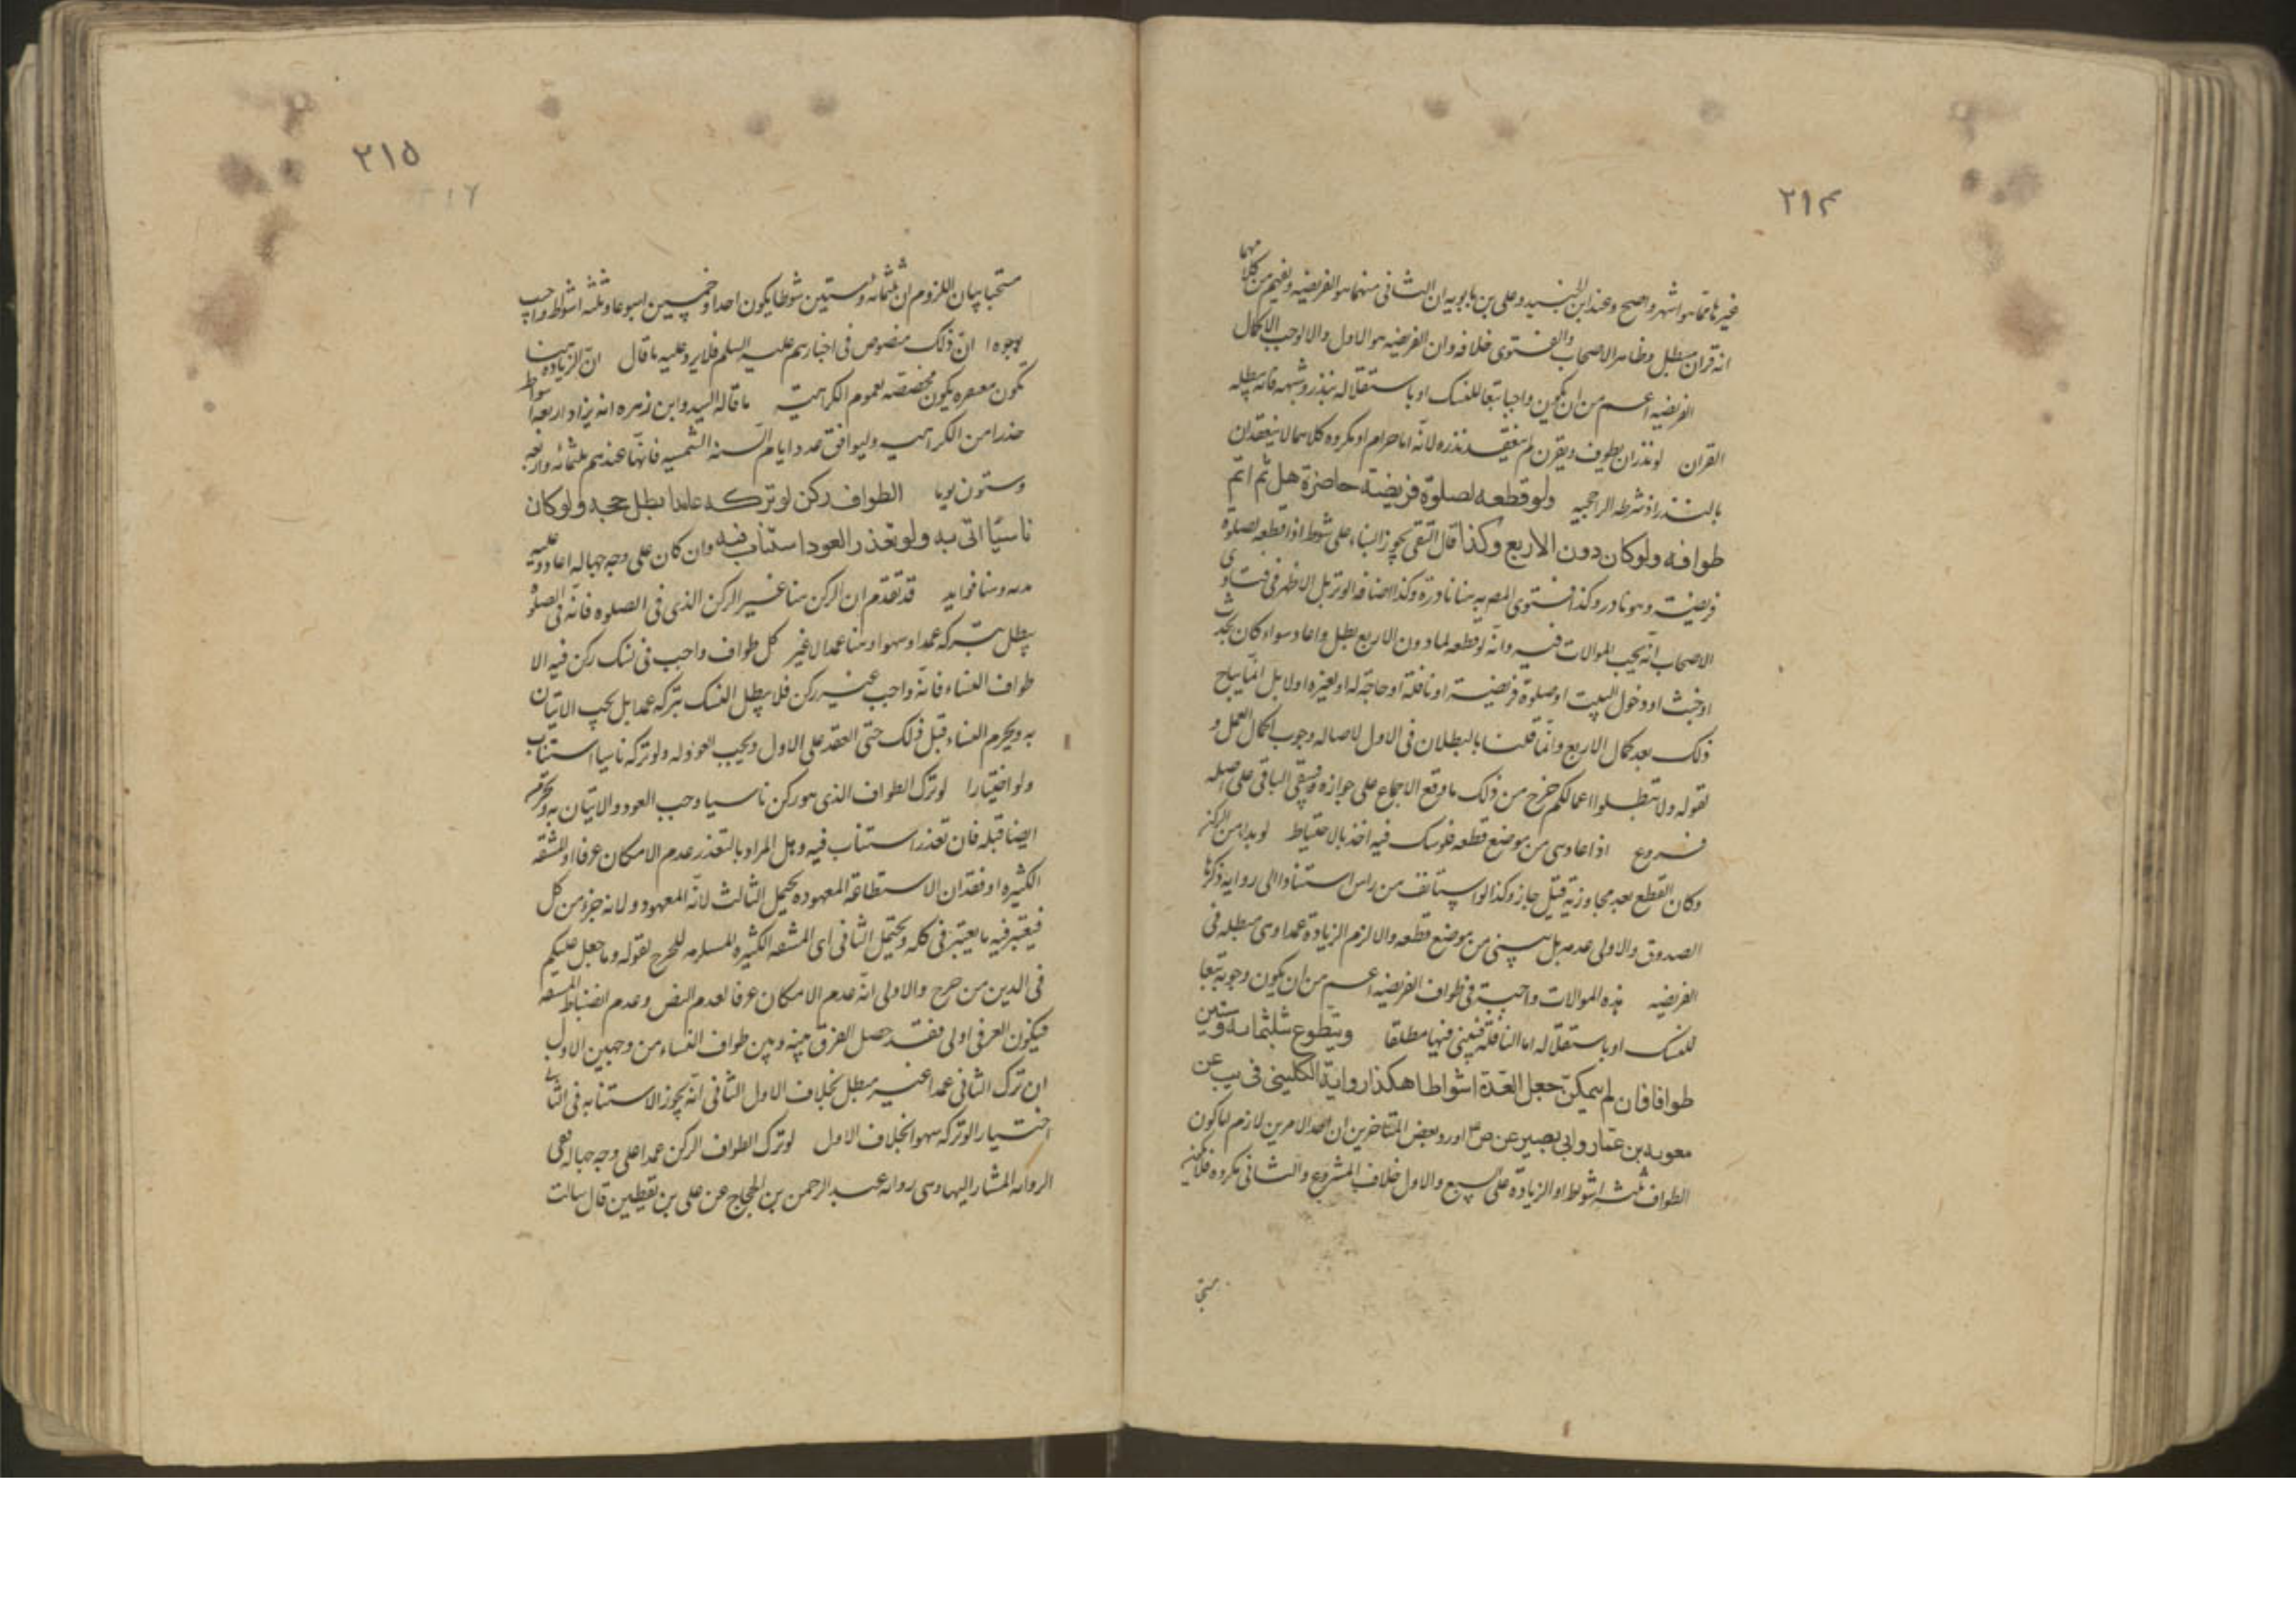 ٢١۴
غيرهما مما هو اشهر واصح وعند ابن الجنيد وعلى بن بابويه ان الثانى منهما هو الفريضه ويفهم من كلامهما
انه قران مبطل وظاهر الاصحاب والفتوى خلافه وان الفريضه هو الاول والا لوجب الاكمال
الفريضه اعم من ان يكون واجبا تبعا للنسك او باستقلاله بنذر وشبهه فانه يبطله
القران لو نذر ان يطوف ويقرن لم ينعقد نذره لانه اما حرام او مكروه وكلاهما لا ينعقدان
بالنذر اذ شرطه الراجحيه ولو قطعه لصلوة فريضة حاضرة هل ثم اتم
طوافه ولوكان دون الاربع وكذا قال التقى يجوز البناء على شوط اذا قطعه لصلوة
فريضة وهو نادر وكذا فتوى المص به هنا نادرة وكذا اضافه الوتر بل الاظهر فى فتاوى
الاصحاب انه يجب الموالات فيه وانه لو قطعه لما دون الاربع بطل واعاد سواء كان لحدث
او خبث او دخول البيت او صلوة فريضة او نافلة او حاجة له او لغيره اولا بل انما يباح
ذلك بعد كمال الاربع وانما قلنا بالبطلان فى الاول لاصاله وجوب اكمال العمل و
لقوله ولا تبطلوا اعمالكم خرج من ذلك ما وقع الاجماع على جوازه وبقى الباقى على اصله
فروع اذا عاد بنى من موضع قطعه فلو شك فيه اخذ بالاحتياط لو بدا من الركن
وكان القطع بعد مجاوزته قيل جاز وكذا لو استانف من راس استنادا الى رواية ذكرها
الصدوق والاولى عدمه بل يبنى من موضع قطعه والا لزم الزيادة عمدا وهى مبطله فى
الفريضه هذه الموالات واجبة فى طواف الفريضه اعم من ان يكون وجوبه تبعا
للنسك او باستقلاله اما النافلة فيبنى فيها مطلقا ويتطوع بثلثمايه وستين
طوافا فان لم يتمكن جعل العدة اشواطا هكذا رواية الكلينى فى يب عن
معويه بن عمار وابى بصير عن ص ع اورد بعض المتاخرين ان احد الامرين لازم اما كون
الطواف ثلثه اشواط او الزيادة على السبع والاول خلاف المشروع والثانى مكروه فلا يكون
مستحبا
٢١٥
مستحبا بيان اللزوم ان ثلثمائه وستين شوطا يكون احدا وخمسين اسبوعا وثلثه اشواط واجيب
بوجوه ا ان ذلك منصوص فى اخبارهم عليه السلم فلا يرد عليه ما قال ان الزيادة هنا
تكون مغتفره فيكون مخصصه لعموم الكراهية ما قاله السيد وابن زهره انه يزاد اربعه اشواط
حذرا من الكراهيه وليوافق عدد ايام السنه الشمسيه فانها عندهم ثلثمائه واربعه
وستون يوما الطواف ركن لو تركه عامدا بطل حجه ولو كان
ناسيا اتى به ولو تعذر العود استناب فيه وان كان على وجه جهاله اعاد وعليه
بدنه وهنا فوايد قد تقدم ان الركن هنا غير الركن الذى فى الصلوه فانه فى الصلوة
يبطل بتركه عمدا وسهوا وهنا عمدا لا غير كل طواف واجب فى نسك ركن فيه الا
طواف النساء فانه واجب غير ركن فلا يبطل النسك بتركه عمدا بل يجب الاتيان
به ويحرم النساء قبل ذلك حتى العقد على الاول ويجب العود له ولو تركه ناسيا استناب
ولو اختيارا لو ترك الطواف الذى هو ركن ناسيا وجب العود والاتيان به ويحرم
ايضا قبله فان تعذر استناب فيه وهل المراد بالتعذر عدم الامكان عرفا او المشقه
الكثيره او فقدان الاستطاعة المعهوده يحتمل الثالث لانه المعهود ولانه جزؤ من كل
فيعتبر فيه ما يعتبر فى كله ويحتمل الثانى اى المشقه الكثيره المستلزمه للحرج لقوله وما جعل عليكم
فى الدين من حرج والاولى انه عدم الامكان عرفا لعدم النص وعدم انضباط المشقه
فيكون العرفى اولى فقد حصل الفرق بينه وبين طواف النساء من وجهين الاول
ان ترك الثانى عمدا غير مبطل بخلاف الاول الثانى انه يجوز الاستنابه فى الثانى
اختيارا لو تركه سهوا بخلاف الاول لو ترك الطواف الركن عمدا على وجه جهاله ففى
الرواية المشار اليها وهى رواية عبد الرحمن بن الحجاج عن على بن يقطين قال سالت